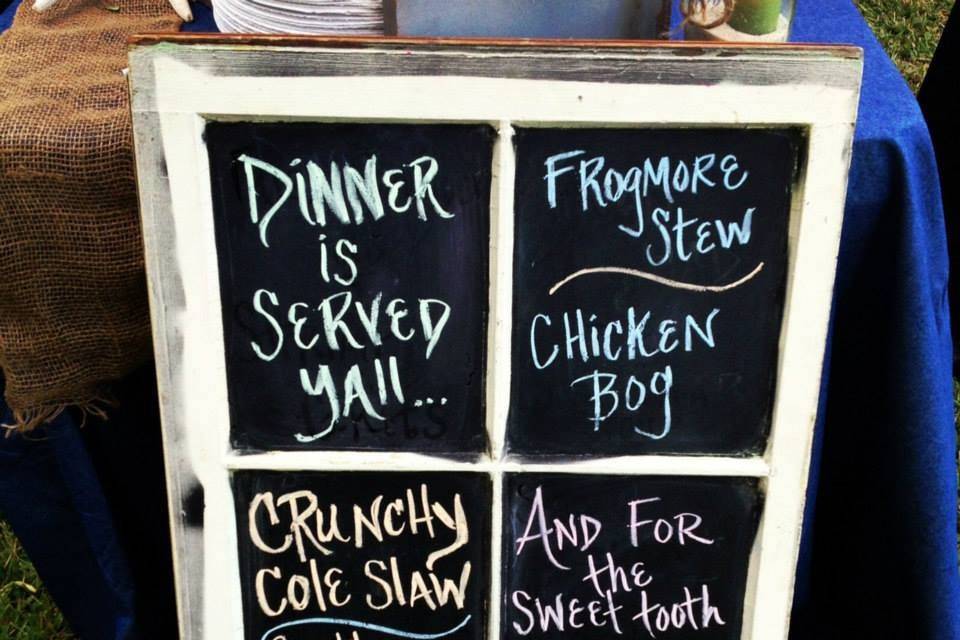 DiNNER
is
SERVED
YAll...
FROgMORE
Stew
CHicKEN
BOg
CRUNCHY
COlE SlAW
AND FOR
the
SWEEt tooth